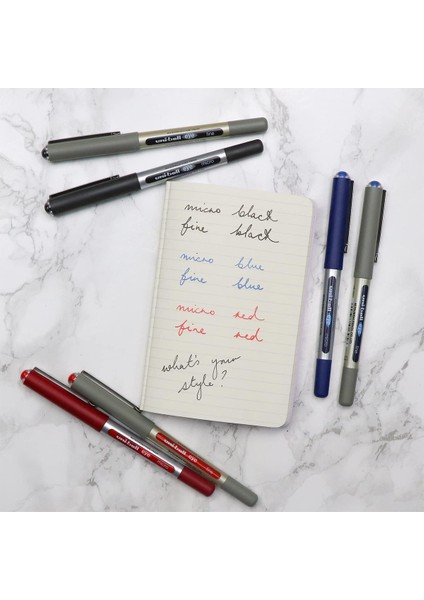 uni-ball eye fine
uni-ball eye micro
micro black
fine black
micro blue
fine blue
micro red
fine red
what's your
style?
uni-ball eye
uni-ball eye
uni-ball eye
uni-ball eye